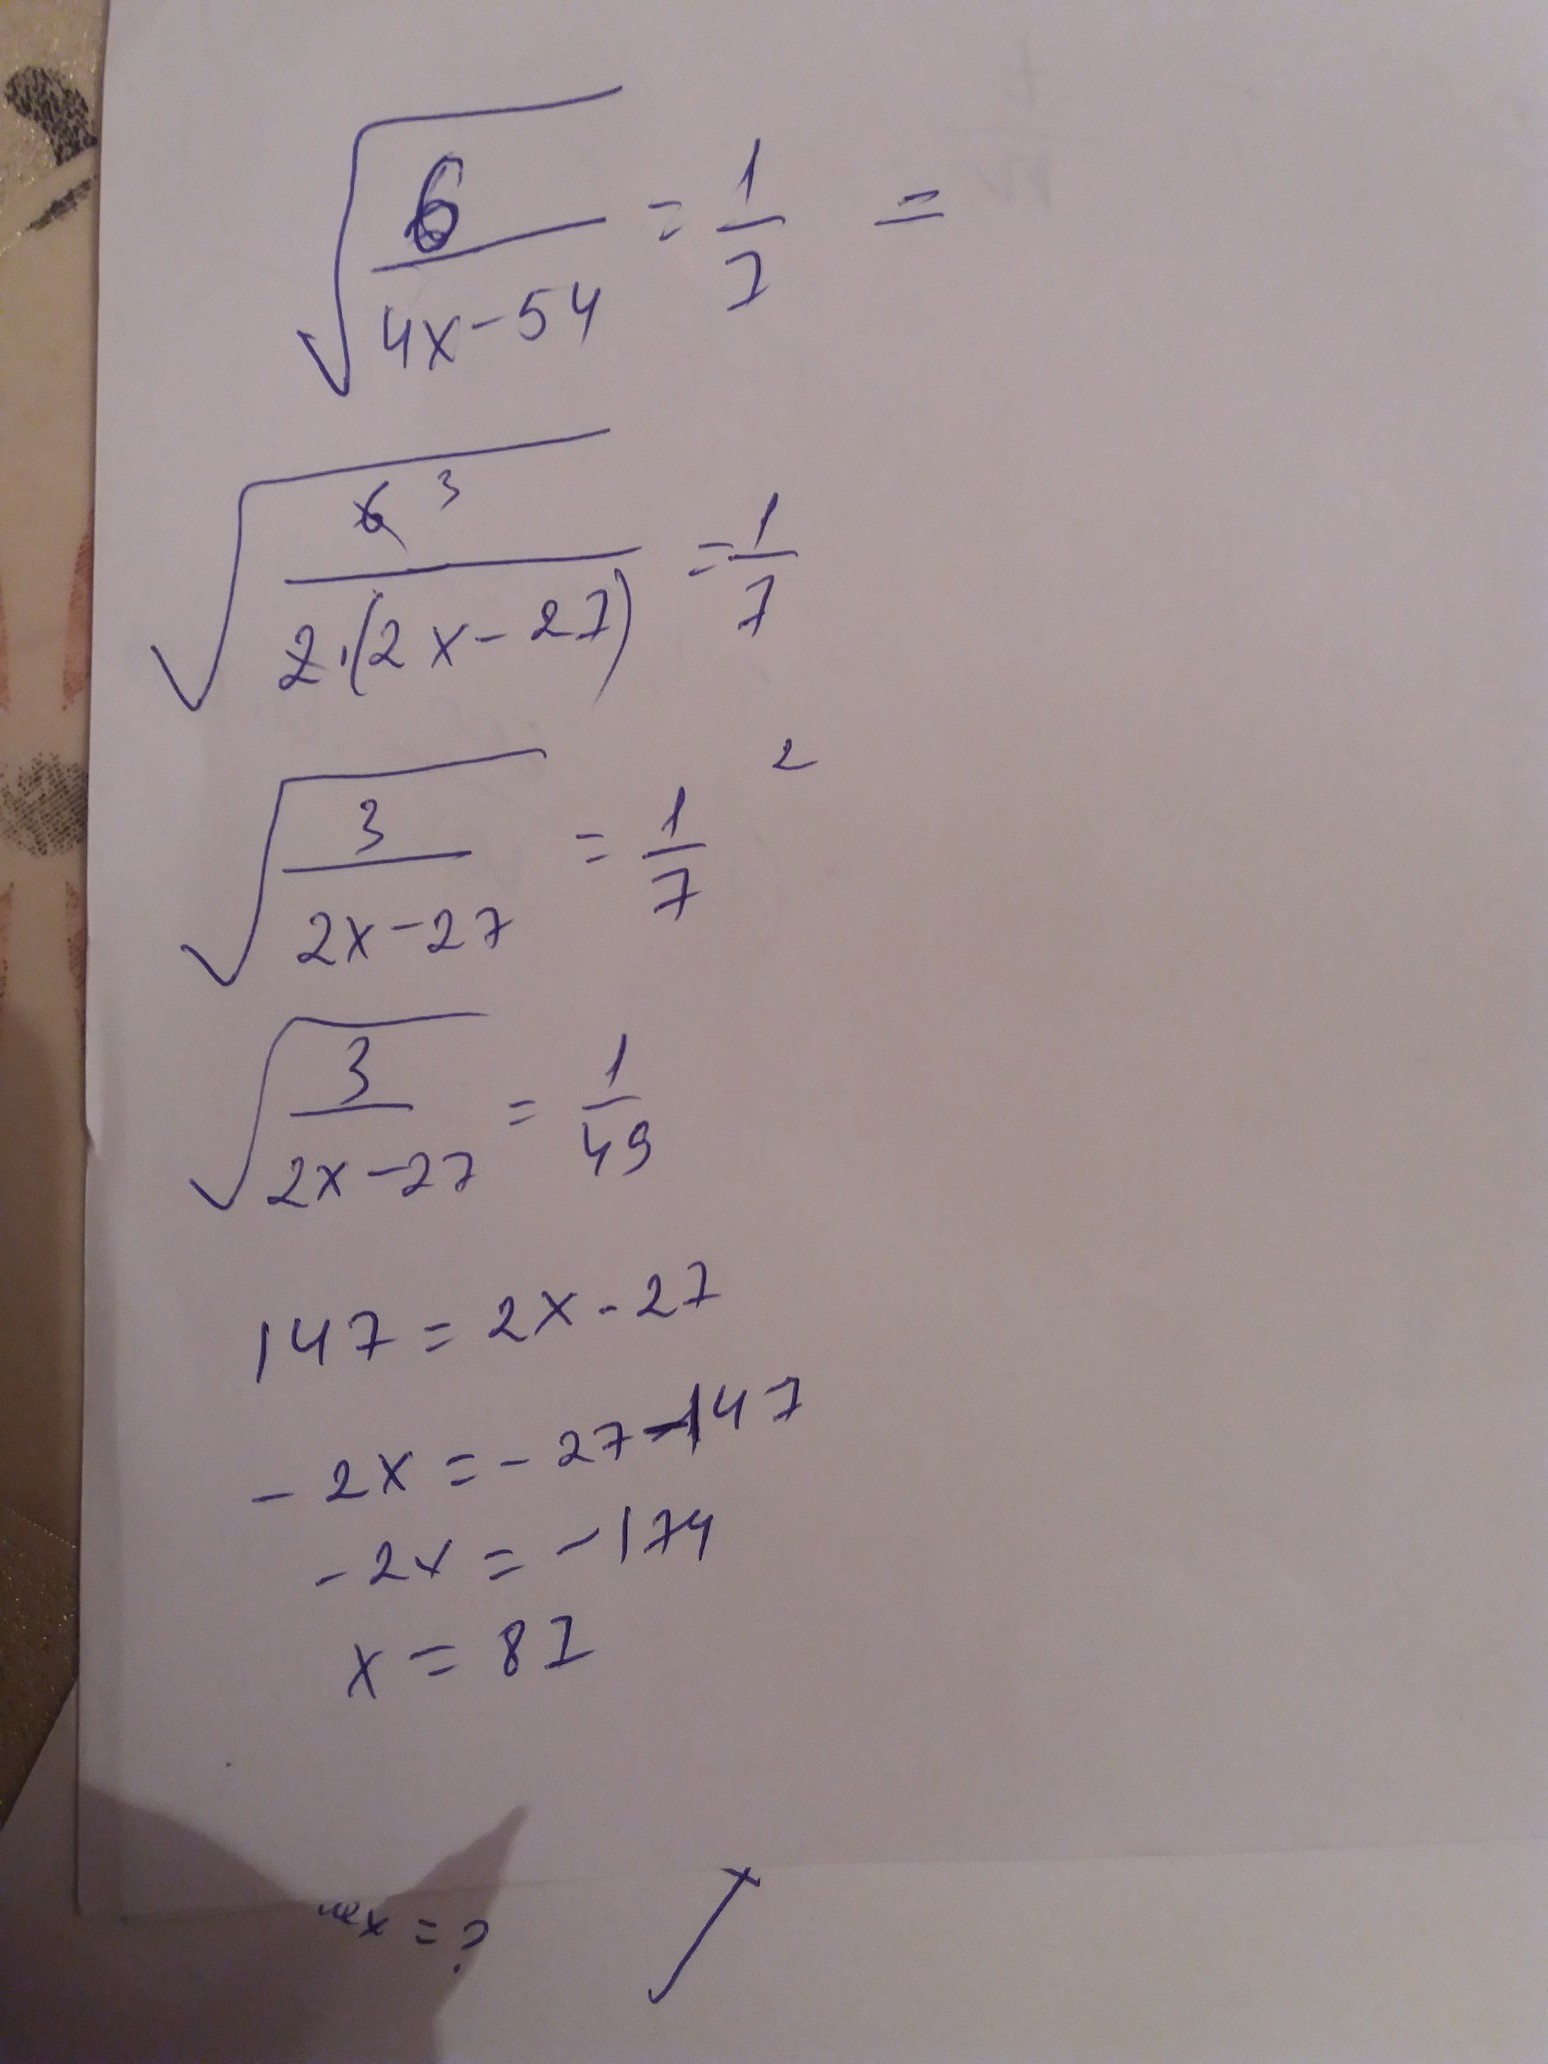 √(6/(4x-54)) = 1/7 =
√(6 3/(2·(2x-27))) = 1/7
√(3/(2x-27)) = 1/7 2
√(3/(2x-27)) = 1/49
147 = 2x-27
-2x = -27-147
-2x = -174
x = 87
x = ?